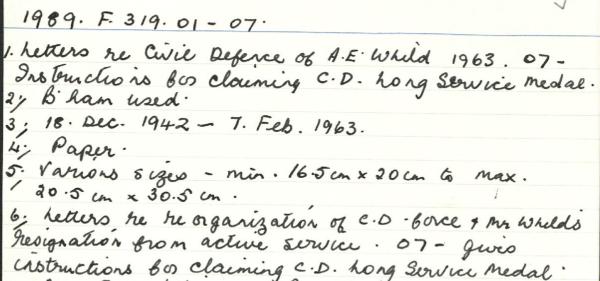 1989. F. 319. 01 - 07.
1. Letters re Civil Defence of A.E. Whild 1963. 07 -
Instructions for claiming C.D. Long Service Medal.
2; B'ham used.
3; 18. Dec. 1942 - 7. Feb. 1963.
4; Paper.
5; Various sizes - min. 16.5cm x 20cm to max.
20.5cm x 30.5cm.
6; Letters re re organization of C.D. force & Mr Whild's
resignation from active service. 07 - gives
instructions for claiming C.D. Long Service Medal.